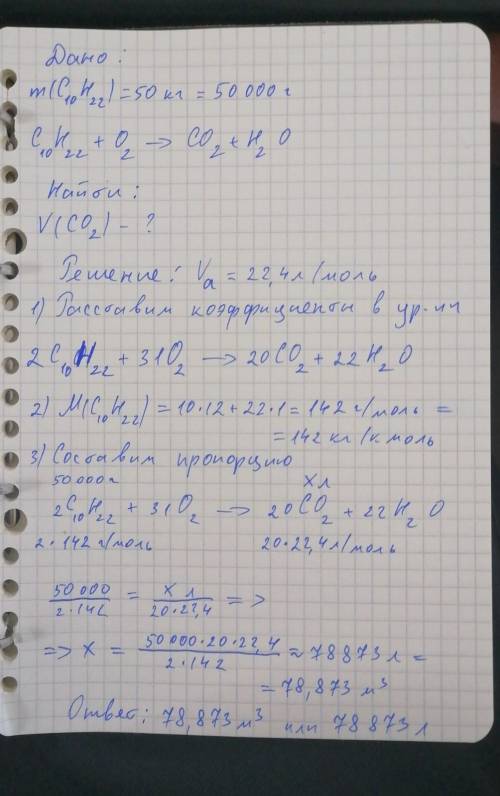 Дано:
m(C₁₀H₂₂) = 50 кг = 50 000 г
C₁₀H₂₂ + O₂ → CO₂ + H₂O
Найти:
V(CO₂) - ?
Решение: Vₐ = 22,4 л/моль
1) Расставим коэффициенты в ур-ии
2C₁₀H₂₂ + 31O₂ → 20CO₂ + 22H₂O
2) M(C₁₀H₂₂) = 10·12 + 22·1 = 142 г/моль =
= 142 кг/кмоль
3) Составим пропорцию
50 000 г x л
2C₁₀H₂₂ + 31O₂ → 20CO₂ + 22H₂O
2·142 г/моль 20·22,4 л/моль
50 000 / 2·142 = x л / 20·22,4 =>
=> x = 50 000·20·22,4 / 2·142 ≈ 78 873 л =
= 78,873 м³
Ответ: 78,873 м³ или 78 873 л